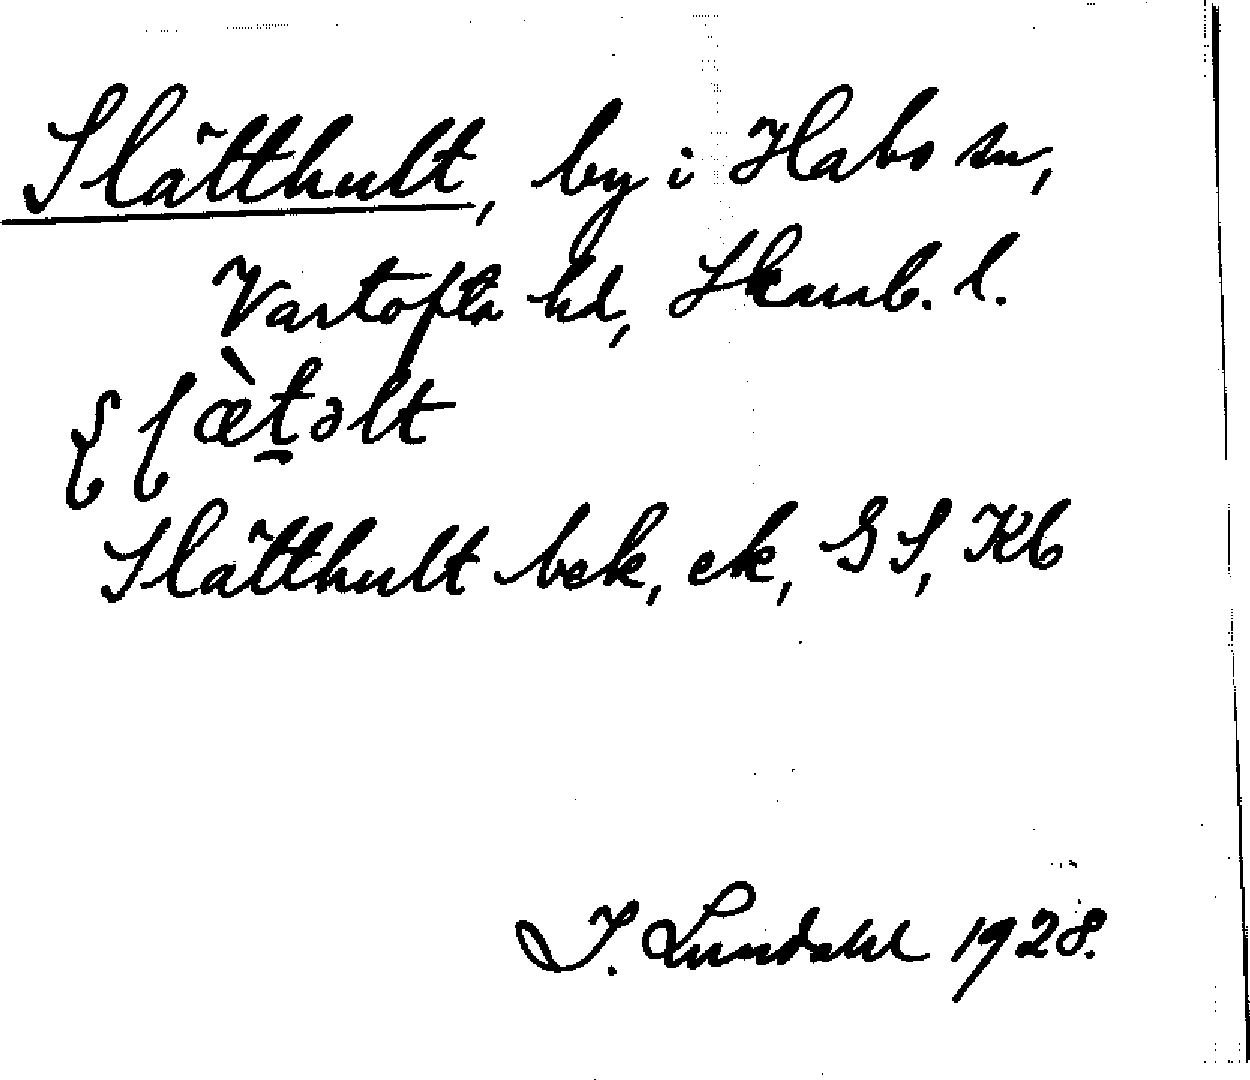 Slätthult, by i Habo sn,
Vartofta hd, Skarab. l.
ʂɭæ̀t̠əlt
Slätthult bek, ek, GS, Kb
I. Lundahl 1928.